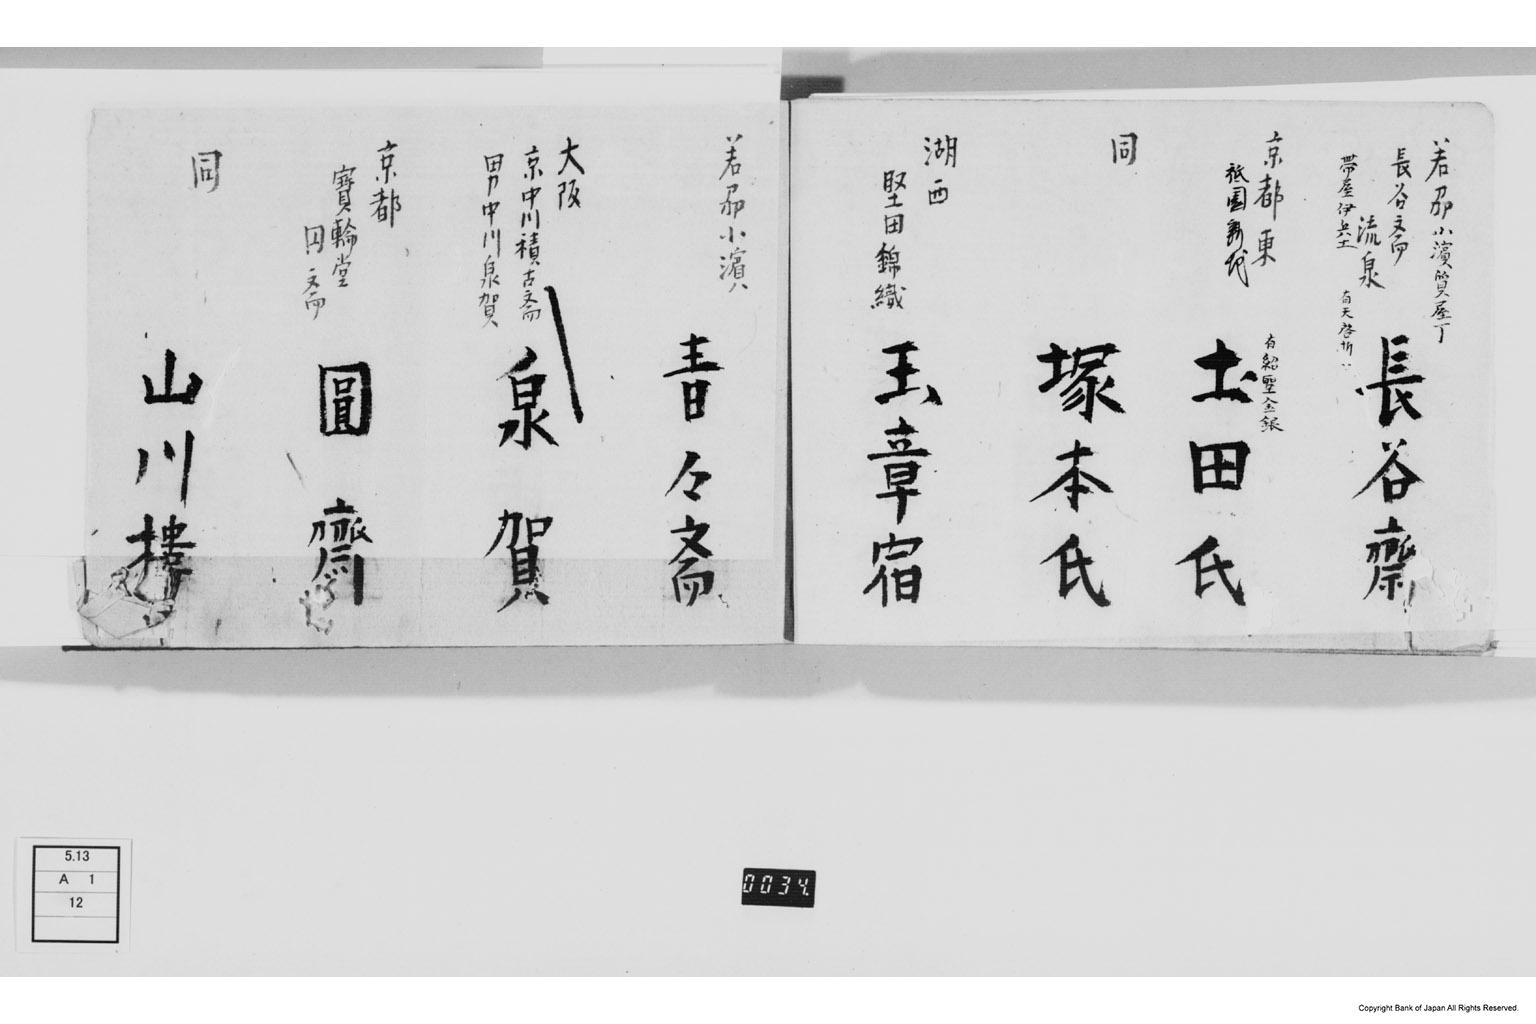 若刕小濱質屋丁
長谷斎
流泉
帯屋伊兵エ
有天啓折
長谷齋
京都東
祇園新地
有紹聖金銀
土田氏
同
塚本氏
湖西
堅田錦織
玉章宿
若刕小濱
青々斎
大阪
京中川積古斎
男中川泉賀
泉賀
京都
寶輪堂
円斎
圓齋
同
山川樓
5.13
A 1
12
0034
Copyright Bank of Japan All Rights Reserved.